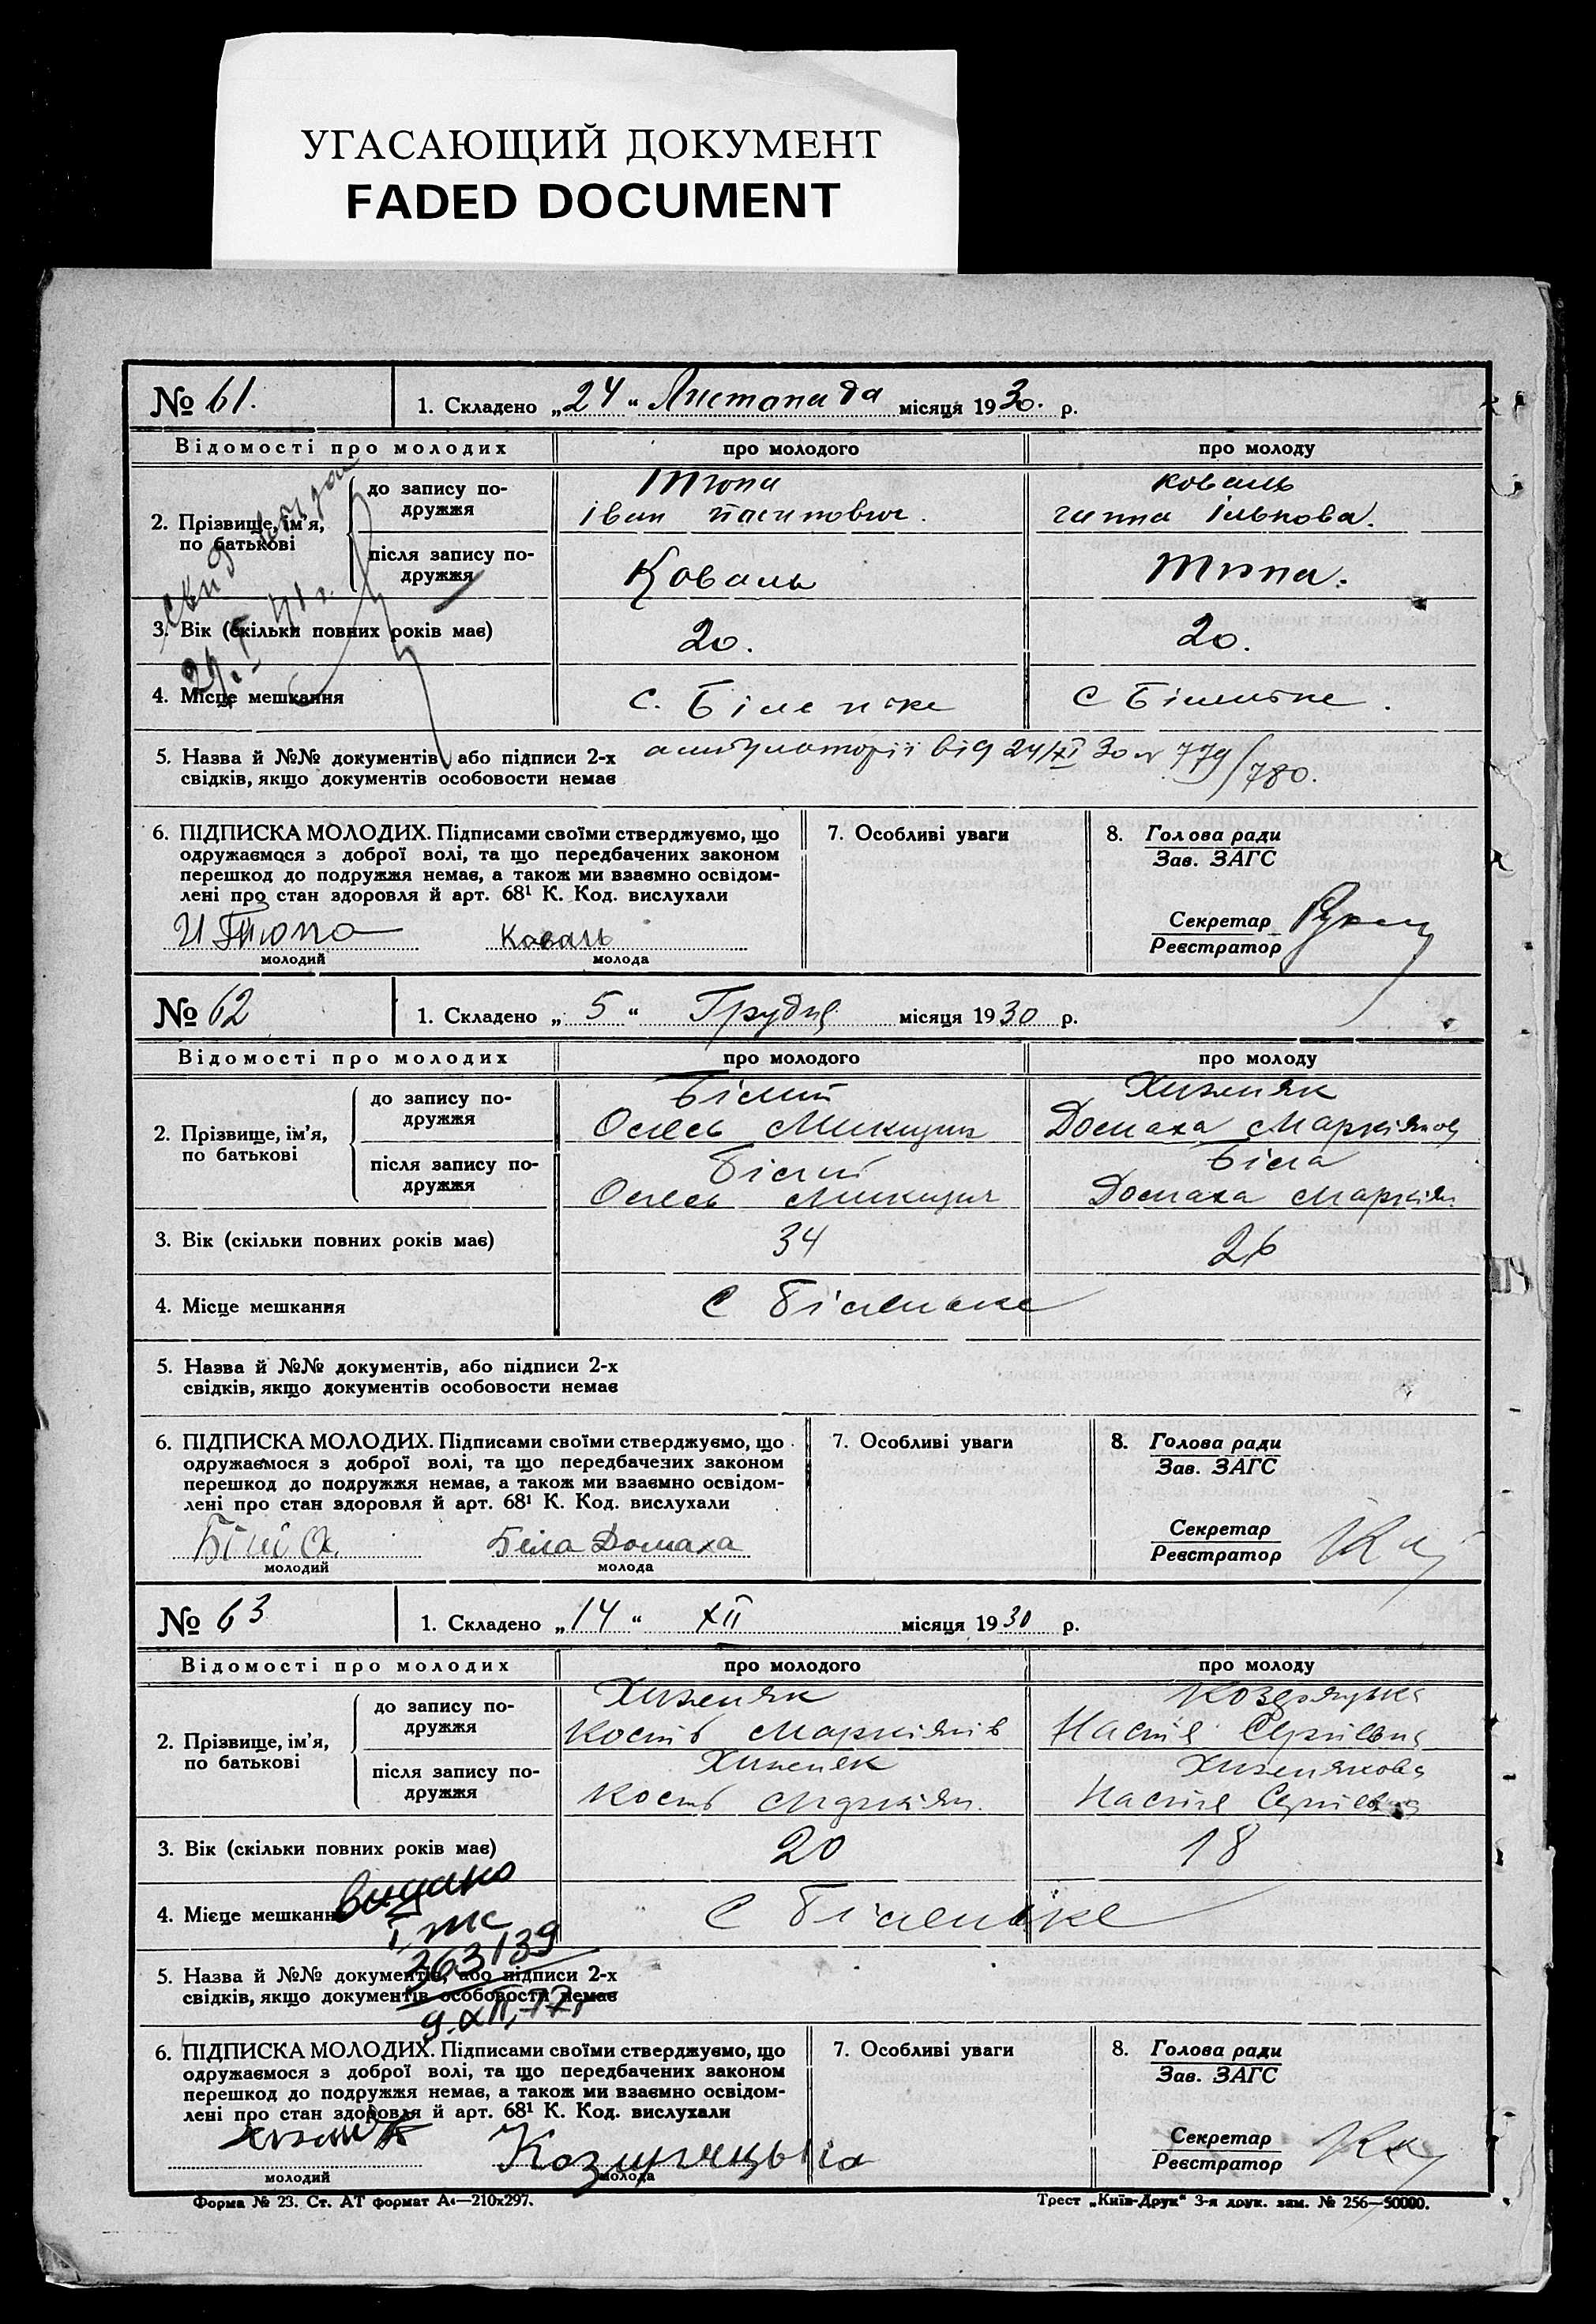 УГАСАЮЩИЙ ДОКУМЕНТ
FADED DOCUMENT
№ 61.
1. Складено „24“ Листопада місяця 1930. р.
Відомості про молодих
про молодого
про молоду
2. Прізвище, ім’я, по батькові
до запису подружжя
Тюпа
Іван
Коваль
Ганна Ількова.
після запису подружжя
Коваль
Тюпа.
3. Вік (скільки повних років має)
20.
20.
4. Місце мешкання
С. Біленьке
С Біленьке.
5. Назва й №№ документів, або підписи 2-х
свідків, якщо документів особовости немає
амбулаторії від 24/XI 30 № 779/780.
6. ПІДПИСКА МОЛОДИХ. Підписами своїми стверджуємо, що
одружаємося з доброї волі, та що передбачених законом
перешкод до подружжя немає, а також ми взаємно освідом-
лені про стан здоровля й арт. 68¹ К. Код. вислухали
И Тюпа
Коваль
молодий
молода
7. Особливі уваги
8. Голова ради
Зав. ЗАГС
Секретар
Реєстратор
№ 62
1. Складено „5“ Грудня місяця 1930 р.
Відомості про молодих
про молодого
про молоду
2. Прізвище, ім’я, по батькові
до запису подружжя
Білий
Олесь Микиты
Хиженяк
Домаха Маркіянов
після запису подружжя
Білий
Олесь
Біла
Домаха Маркіян.
3. Вік (скільки повних років має)
34
26
4. Місце мешкання
С Біленьке
5. Назва й №№ документів, або підписи 2-х
свідків, якщо документів особовости немає
6. ПІДПИСКА МОЛОДИХ. Підписами своїми стверджуємо, що
одружаємося з доброї волі, та що передбачених законом
перешкод до подружжя немає, а також ми взаємно освідом-
лені про стан здоровля й арт. 68¹ К. Код. вислухали
Білий О.
Біла Домаха
молодий
молода
7. Особливі уваги
8. Голова ради
Зав. ЗАГС
Секретар
Реєстратор
№ 63
1. Складено „14“ XII місяця 1930 р.
Відомості про молодих
про молодого
про молоду
2. Прізвище, ім’я, по батькові
до запису подружжя
Хиженяк
Кость Маркіянів
Настя
після запису подружжя
Хиженяк
Кость Маркіян.
Хиженякова
Настя
3. Вік (скільки повних років має)
20
18
4. Місце мешкання
С Біленьке
видано
363139
9.XII,-77г
5. Назва й №№ документів, або підписи 2-х
свідків, якщо документів особовости немає
6. ПІДПИСКА МОЛОДИХ. Підписами своїми стверджуємо, що
одружаємося з доброї волі, та що передбачених законом
перешкод до подружжя немає, а також ми взаємно освідом-
лені про стан здоровля й арт. 68¹ К. Код. вислухали
молодий
молода
7. Особливі уваги
8. Голова ради
Зав. ЗАГС
Секретар
Реєстратор
Форма № 23. Ст. АТ формат А4—210х297.
Трест „Київ-Друк“ 3-я друк. зам. № 256—50000.